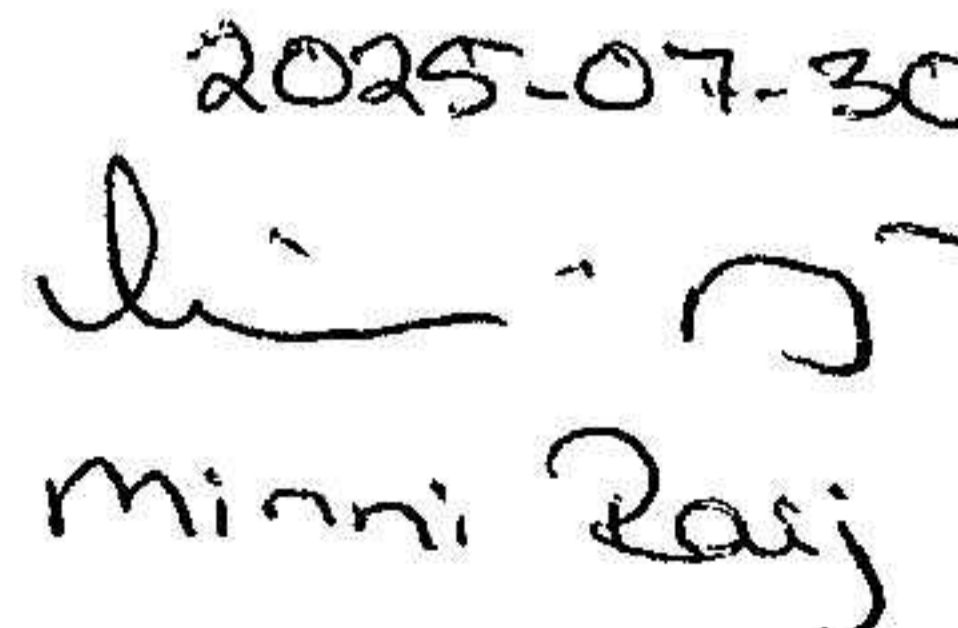 2025-07-30
Minni Raij